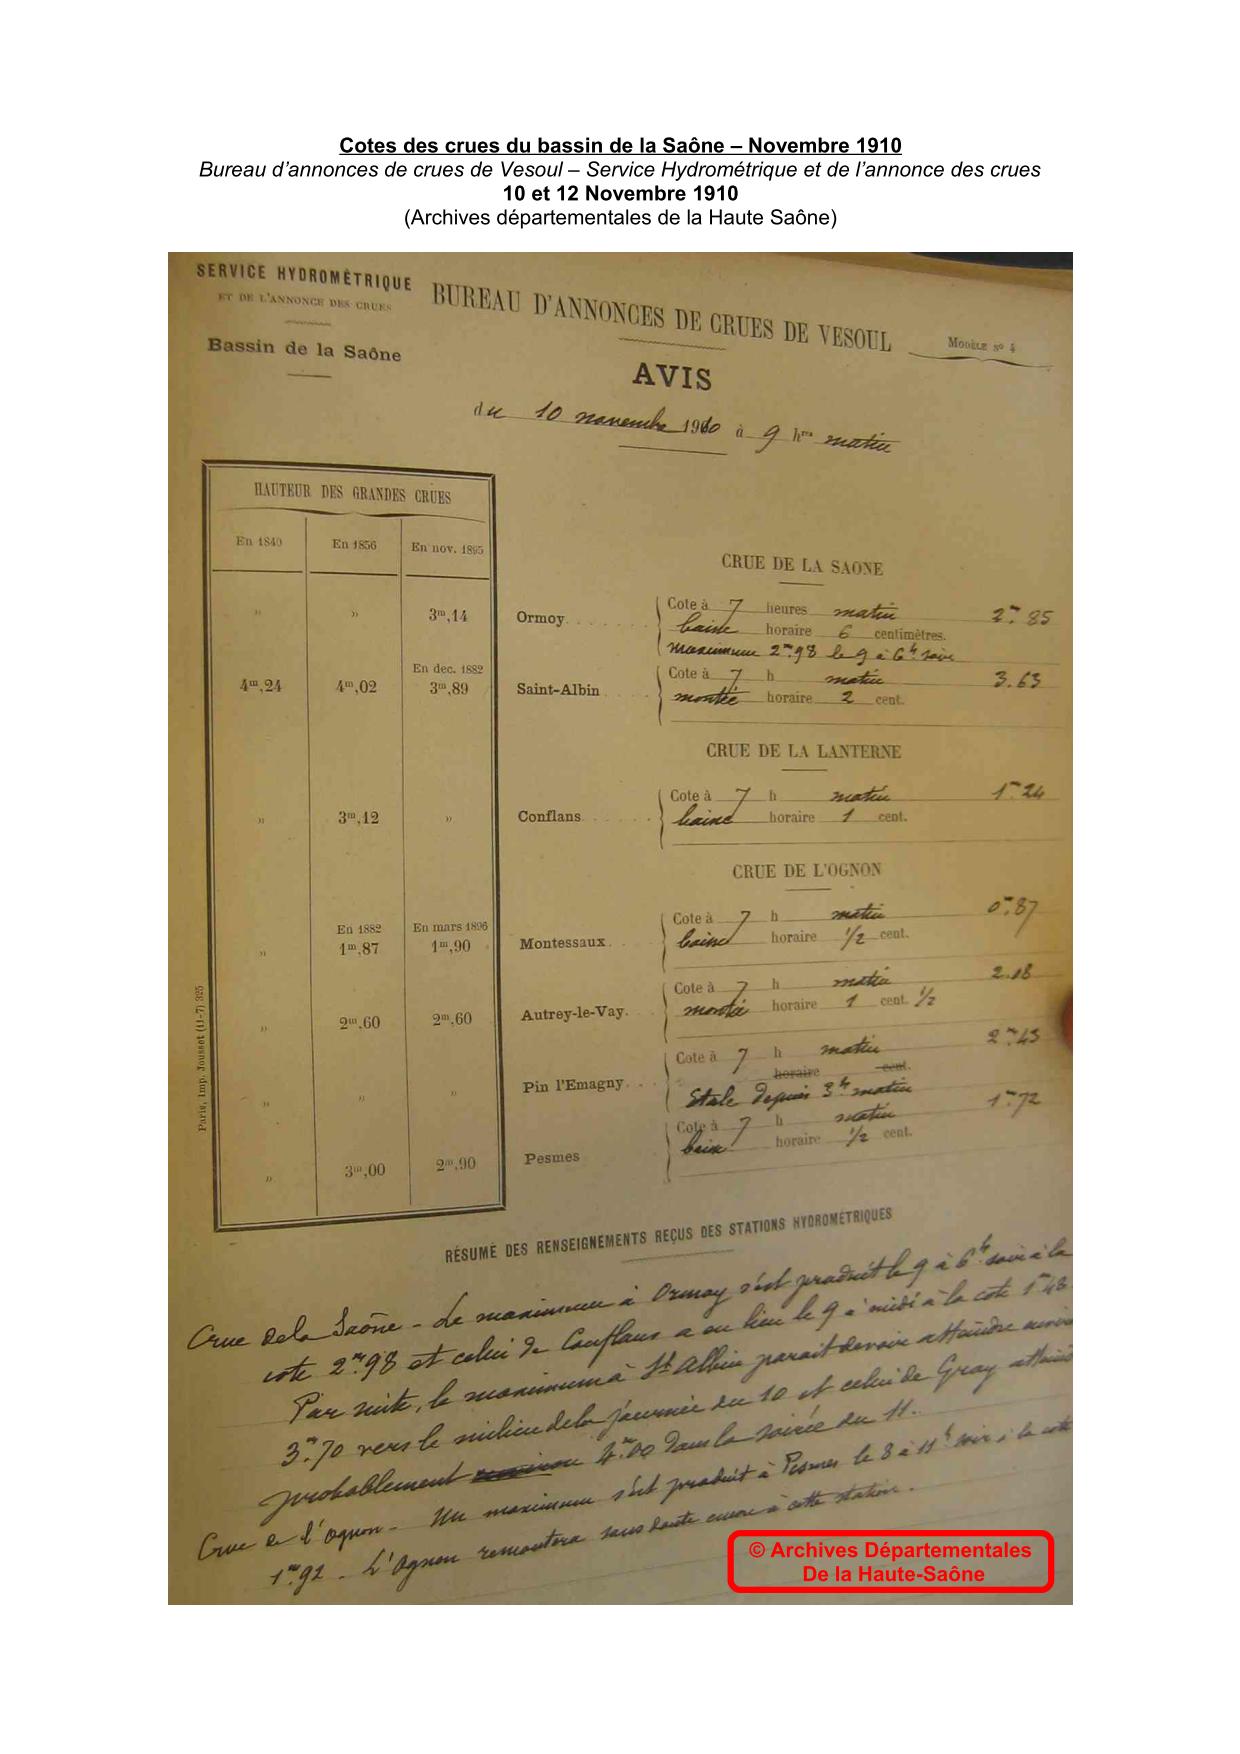 Cotes des crues du bassin de la Saône – Novembre 1910
Bureau d'annonces de crues de Vesoul – Service Hydrométrique et de l'annonce des crues
10 et 12 Novembre 1910
(Archives départementales de la Haute Saône)
SERVICE HYDROMÉTRIQUE
ET DE L'ANNONCE DES CRUES
Bassin de la Saône
BUREAU D'ANNONCES DE CRUES DE VESOUL
MODÈLE No 4
AVIS
du 10 novembre 1910 à 9 hres matin
HAUTEUR DES GRANDES CRUES
En 1840 En 1856 En nov. 1895
CRUE DE LA SAONE
" " 3m,14 Ormoy Cote à 7 heures matin 2m.85
baisse horaire 6 centimètres.
maximum 2m98 le 9 à 6h soir
En dec. 1882
4m,24 4m,02 3m,89 Saint-Albin Cote à 7 h matin 3.63
montée horaire 2 cent.
CRUE DE LA LANTERNE
" 3m,12 " Conflans Cote à 7 h matin 1m.24
baisse horaire 1 cent.
CRUE DE L'OGNON
En 1882 En mars 1896
" 1m,87 1m,90 Montessaux Cote à 7 h matin 0m.87
baisse horaire 1/2 cent.
" 2m,60 2m,60 Autrey-le-Vay Cote à 7 h matin 2.18
montée horaire 1 cent. 1/2
" " " Pin l'Emagny Cote à 7 h matin 2m.43
horaire cent.
Etale depuis 3h matin
" 3m,00 2m,90 Pesmes Cote à 7 h matin 1m.72
baisse horaire 1/2 cent.
Paris, Imp. Jousset (11-7) 325
RÉSUMÉ DES RENSEIGNEMENTS REÇUS DES STATIONS HYDROMÉTRIQUES
Crue de la Saône - Le maximum à Ormoy s'est produit le 9 à 6h soir à la
cote 2m98 et celui de Conflans a eu lieu le 9 à midi à la cote 1m48
Par suite, le maximum à St Albin parait devoir atteindre environ
3m70 vers le milieu de la journée du 10 et celui de Gray atteind
probablement 4m00 dans la soirée du 11.
Crue de l'Ognon - Un maximum s'est produit à Pesmes le 8 à 11h soir à la cote
1m92 - L'Ognon remontera sans doute encore à cette station.
© Archives Départementales
De la Haute-Saône